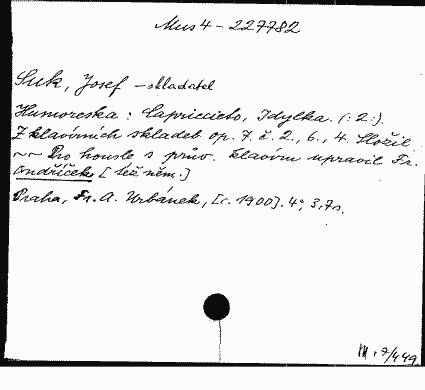 Mus 4 - 227782
Suk, Josef - skladatel
Humoreska : Capriccieto, Idylka. (: 2 :).
Z klavírních skladeb op. 7. č. 2., 6., 4. Složil
~~ Pro housle s prův. klavíru upravil Fr.
Ondříček [též něm.]
Praha, Fr. A. Urbánek, [c. 1900]. 4°, 3,7 s.